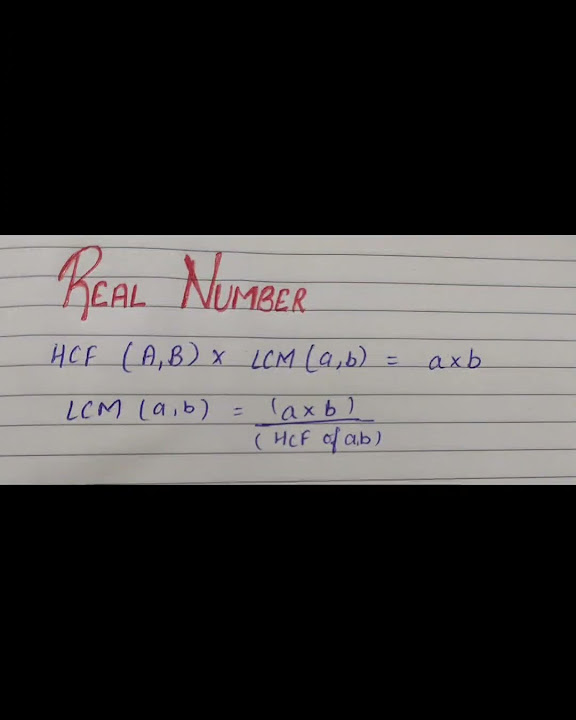 REAL NUMBER
HCF (A,B) x LCM (a,b) = axb
LCM (a,b) = (axb)
(HCF of a,b)